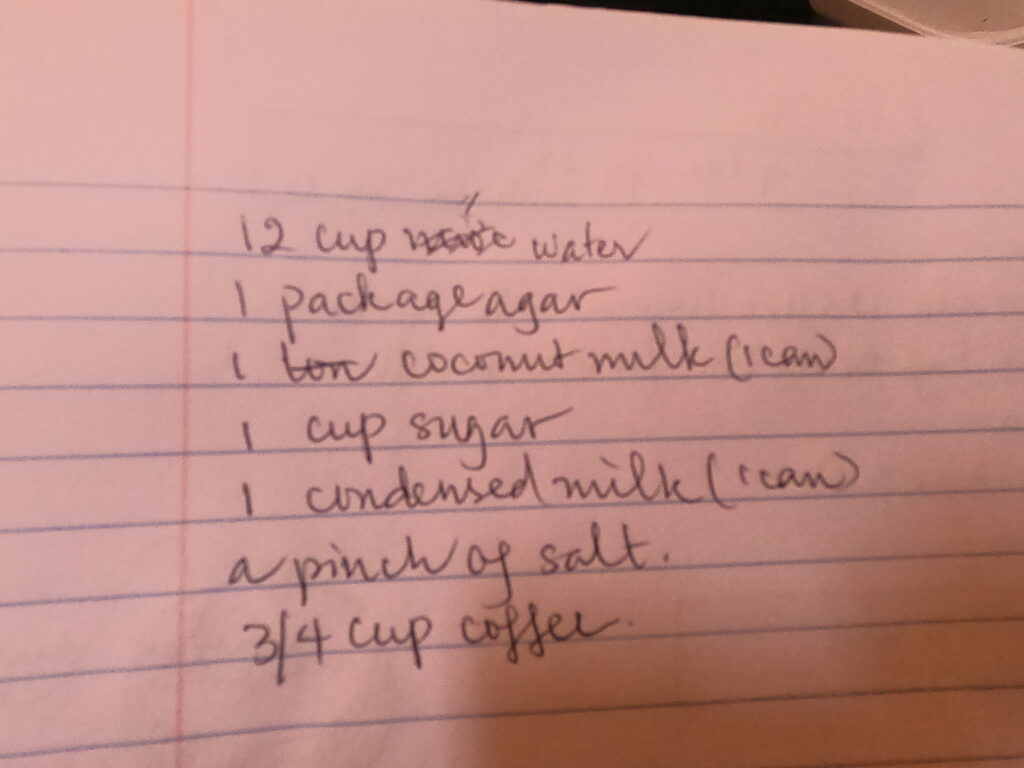 12 cup water
1 package agar
1 coconut milk (1 can)
1 cup sugar
1 condensed milk (1 can)
a pinch of salt.
3/4 cup coffee.